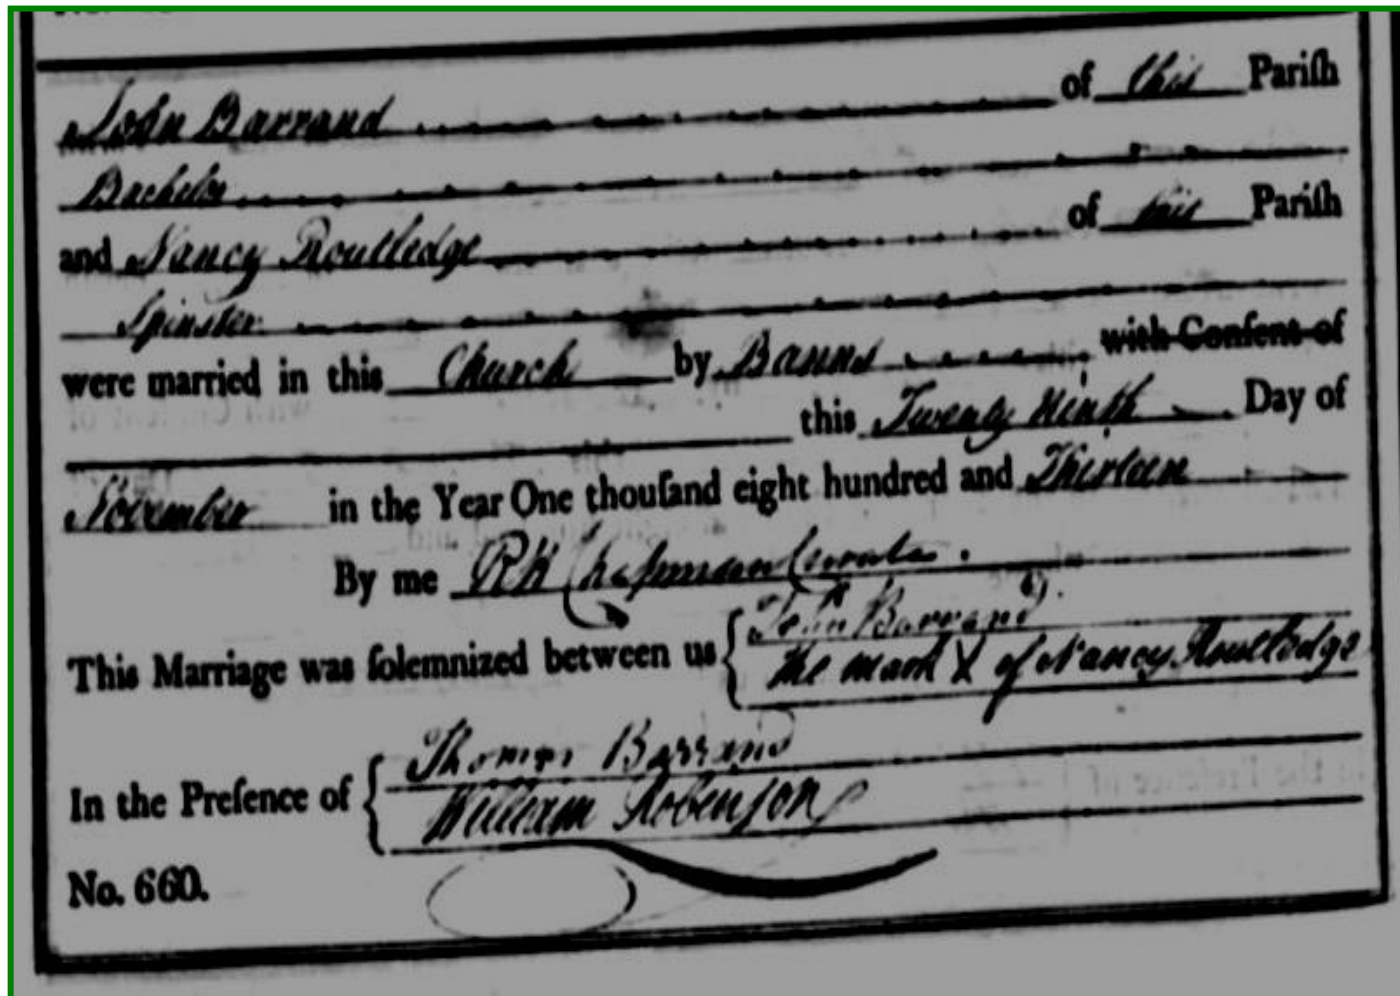 John Barrand of this Pariſh
Bachelor
and Nancy Routledge of this Pariſh
Spinster
were married in this Church by Banns with Conſent of
this Twenty Ninth Day of
November in the Year One thouſand eight hundred and Thirteen
By me RH Chapman Curate.
This Marriage was ſolemnized between us John Barrand
the mark X of Nancy Routledge
In the Preſence of Thomas Barrand
William Robinson
No. 660.